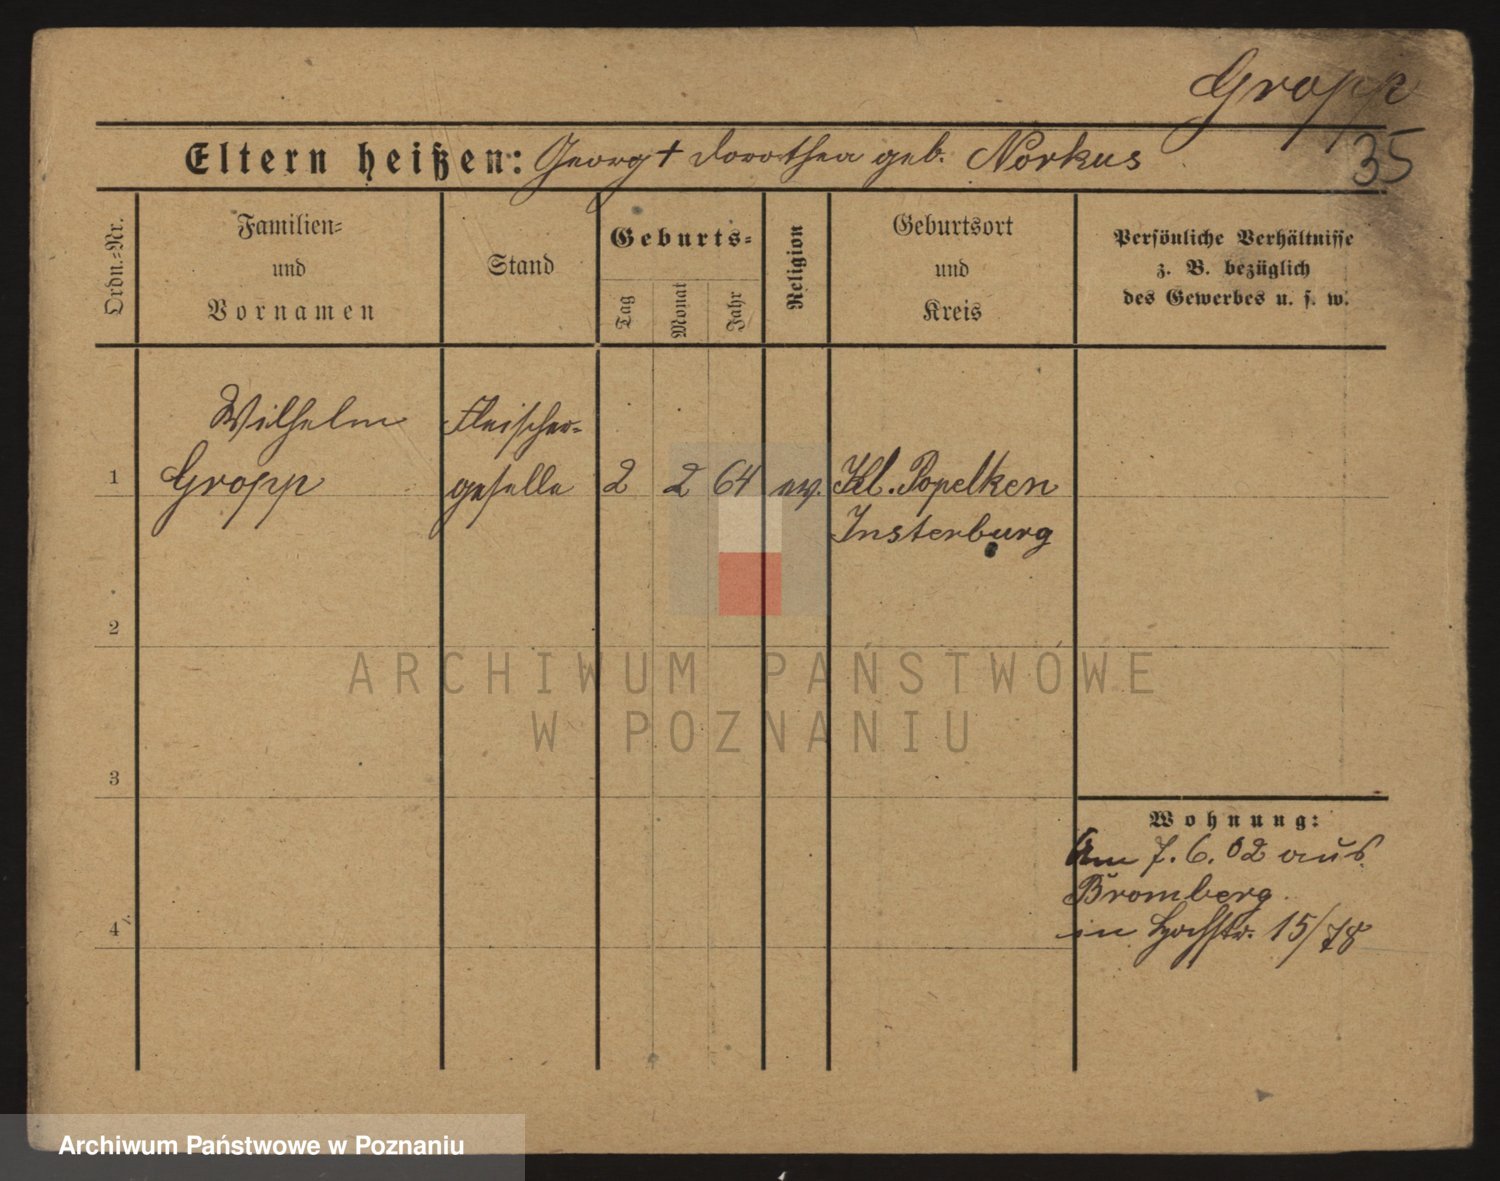 Gropp
35
Eltern heißen: Georg + Dorothea geb. Norkus
Ordn.-Nr.
Familien-
und
Vornamen
Stand
Geburts-
Tag
Monat
Jahr
Religion
Geburtsort
und
Kreis
Persönliche Verhältnisse
z. B. bezüglich
des Gewerbes u. s. w.
Wilhelm
Gropp
Fleischer-
geselle
1
2 2 64
ev.
Kl. Popelken
Insterburg
2
3
4
Wohnung:
Am 7. 6. 02 aus
Bromberg
in Hochstr. 15/78
ARCHIWUM PAŃSTWOWE
W POZNANIU
Archiwum Państwowe w Poznaniu